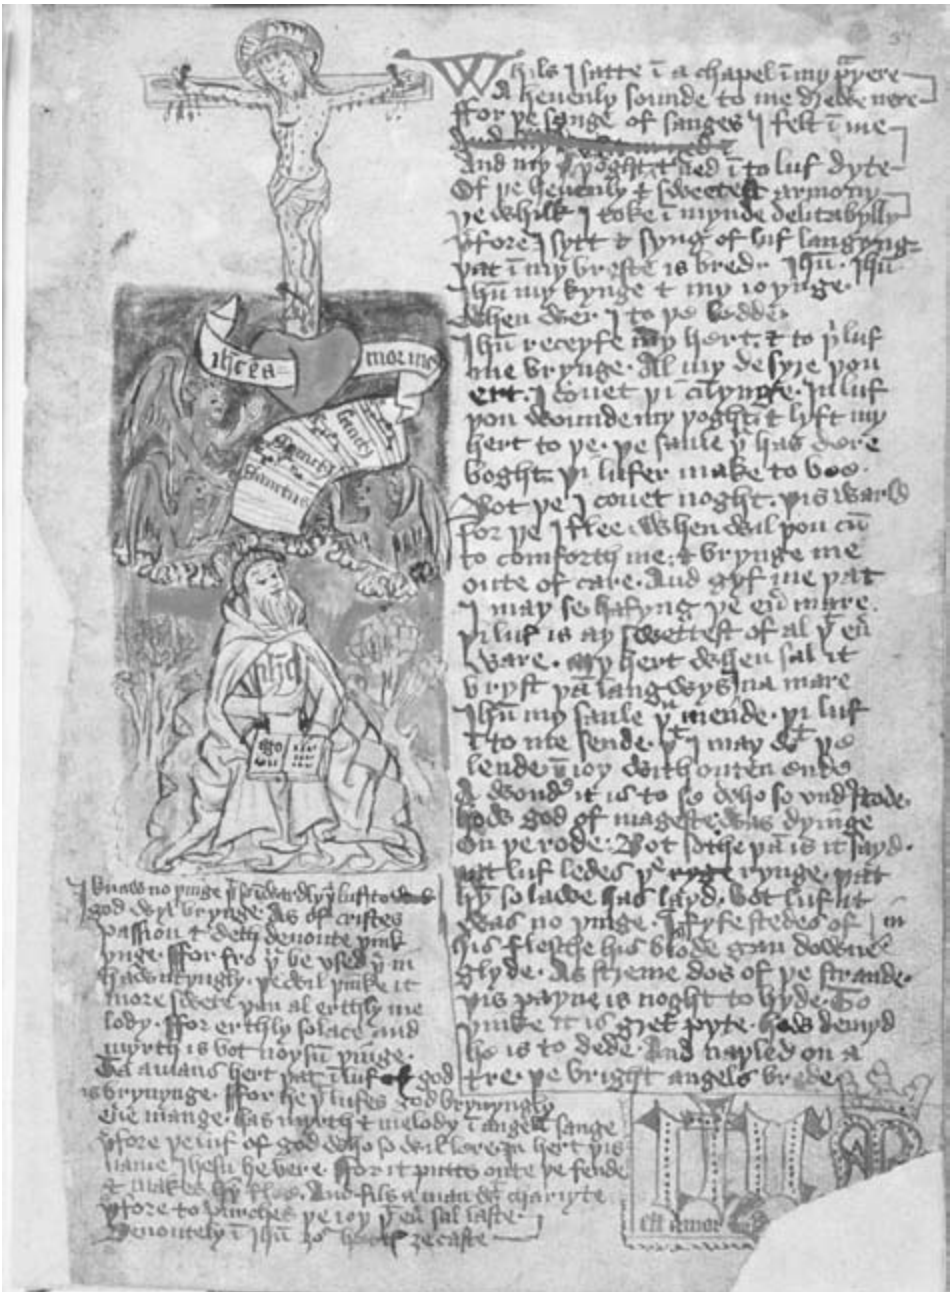 Whils I satte ī a chapel ī my p̄yere
A heuenly sounde to me drewe nere
ffor þe sange of sanges I felt ī me
And my þoght t̄ned ī to luf dyte
Of þe heuenly & sweetest armony
þe whilk I toke ī mynde delitabylly
þfore I sytt & syng of luf langyng
þat ī my breste is bred. Ihū. Ihū
Ihū my kynge & my ioynge.
When wer I to þe ledde.
Ihū receyfe my hert. & to þi luf
me brynge. Al my desyre þou
ert. I couet þi cūynge. In luf
þou wounde my þoght & lyft my
hert to þe. þe saule þ has dere
boght. þi lufer make to bee.
Bot þe I couet noght. þis warld
for þe I flee. When wil þou cū
to comforth me. & brynge me
oute of care. And gyf me þat
I may se hafyng þe eū mare.
þi luf is ay swettest of al þ̄ eū
ware. my hert when sal it
bryst þā lang wys I na mare
Ihū my saule þu mende. þi luf
ī to me sende. þt I may wt þe
lende. ī ioy with outen ende
A wond' it is to se who so vnd'stode.
how god of mageste was dyinge
On þe rode. Bot sothe þā is it sayd.
þat luf ledes þe rynge. þat
hȳ so lawe has layd. bot luf it
was no þinge. In fyfe stedes of
his flesche his blode gan downe
glyde. As streme dos of þe strande.
þis payne is noght to hyde. To
þinke it is gret pyte. how demyd
he is to dede. And nayled on a
tre. þe bright angels brede
ihc est
amor meus
sanctus
sanctus
sanctus
ihc
ego
I knaw no þinge þt so inwardly þi luf to
god wyl brynge. As of cristes
passion & deth deuoute þink
ynge. ffor fro þ̄ be vsed þ̄ in
hawntyngly. þe wil þinke it
more swete þan al erthly me
lody. ffor erthly solace and
myrth is bot noysū þinge.
To a mans hert þat ī luf of god
is brynynge. ffor he þt lufes god brynyngly
has myrth & melody ī angell sange
þfore þe luf of god who so wil lere. in hert þis
name Ihesu he bere. ffor it puttes oute þe fende
& makes hȳ flee. And fils a man wt charyte
þfore to þe ioy þt eū sal laste.
Deuoutely ī Ihū
est amor